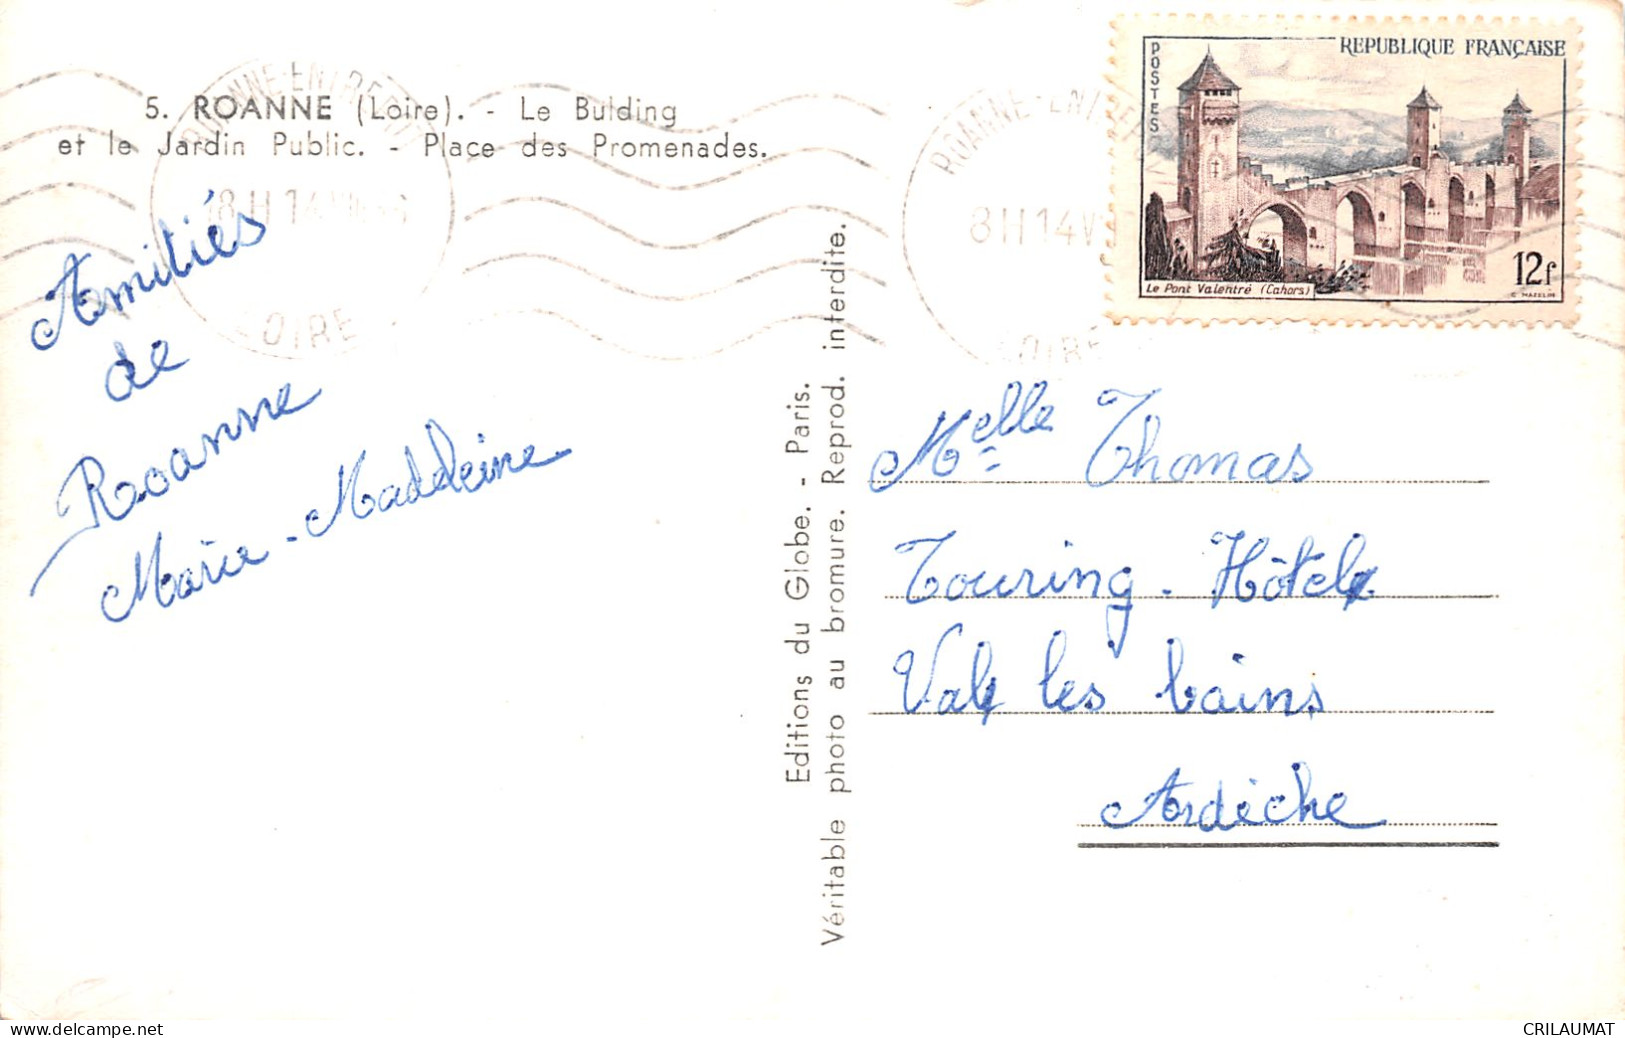 5. ROANNE (Loire). - Le Bulding
et le Jardin Public. - Place des Promenades.
ROANNE-ENTREPOT
LOIRE
Amitiés
de
Roanne
Marie-Madeleine
Editions du Globe. - Paris.
Véritable photo au bromure. Reprod. interdite.
ROANNE-ENTREP
8H 14 V
LOIRE
POSTES
REPUBLIQUE FRANÇAISE
Le Pont Valentré (Cahors)
12f
C. MAZELIN
Melle Thomas
Touring-Hôtel
Val les bains
Ardèche
www.delcampe.net
CRILAUMAT